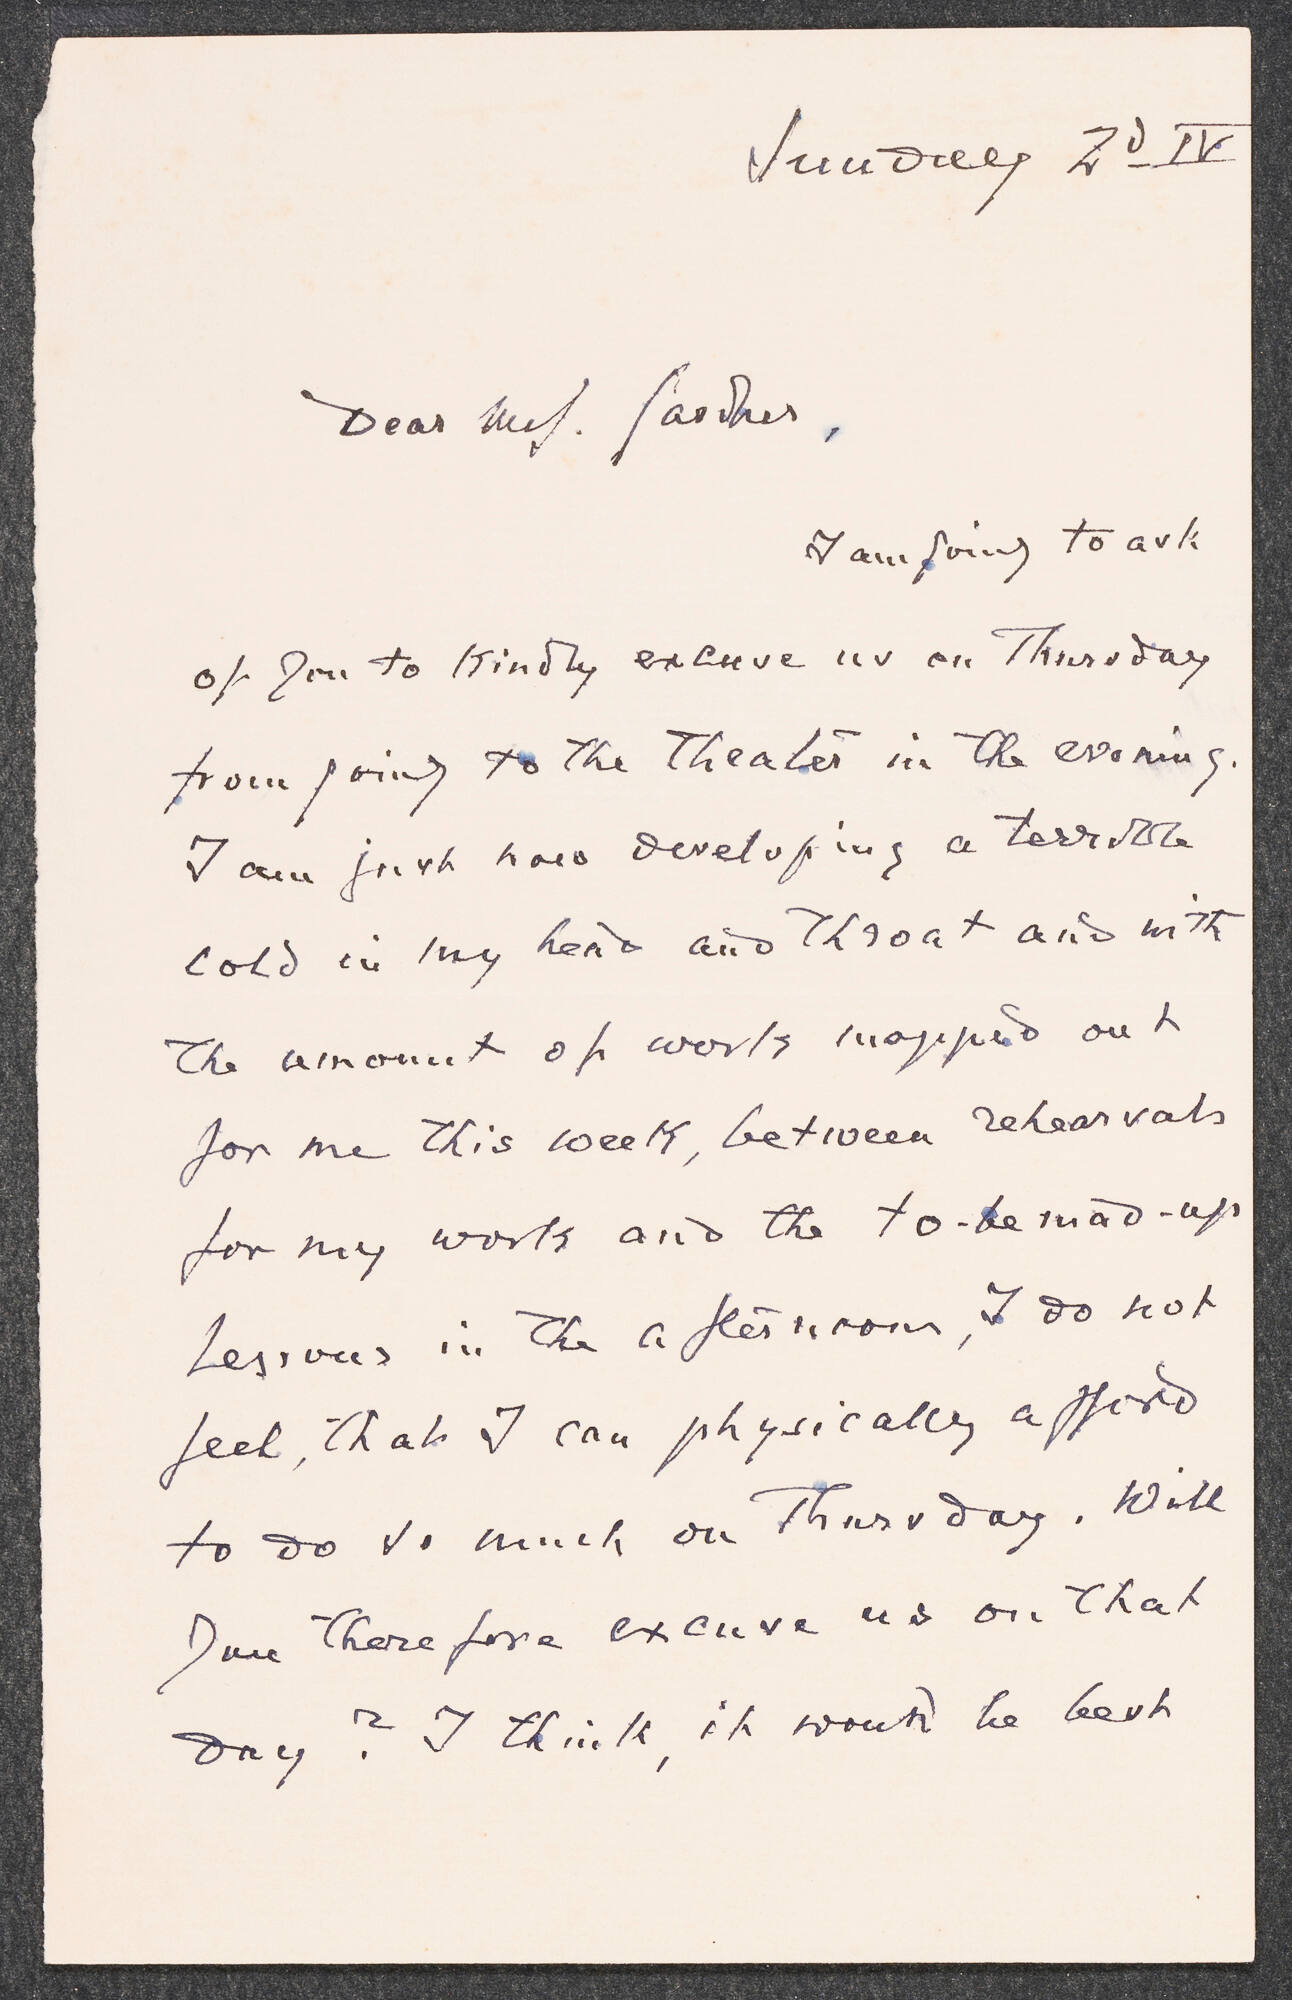 Sunday 2d IV
Dear Mrs. Gardner,
I am going to ask
of you to kindly excuse us on Thursday
from going to the Theater in the evening.
I am just now developing a terrible
cold in my head and throat and with
the amount of work mapped out
for me this week, between rehearsals
for my work and the to-be mad-up
Lessons in the afternoons, I do not
feel, that I can physically afford
to do so much on Thursday. Will
you therefore excuse us on that
day? I think, it would be best